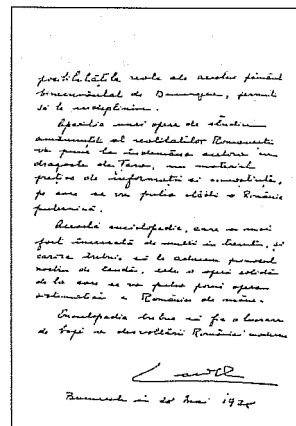 posibilitățile reale ale acestui pământ
binecuvântat de Dumnezeu, permit
să le îndeplinim.
Apariția unei opere de studiu
amănunțit al realităților Românești
va pune la îndemâna celor
dragoste de Țară, un material
prețios de informații și cunoștințe,
pe care se va putea clădi o Românie
puternică.
Această enciclopedie, care a mai
fost încercată de mulți în trecut, și
căreia trebuie să le aducem prinosul
nostru de laudă, este o operă solidă
de la care se va putea porni opera
sistematică a României de mâine.
Enciclopedia trebue să fie o lucrare
de bază a desvoltării României moderne
București în 20 Mai 193